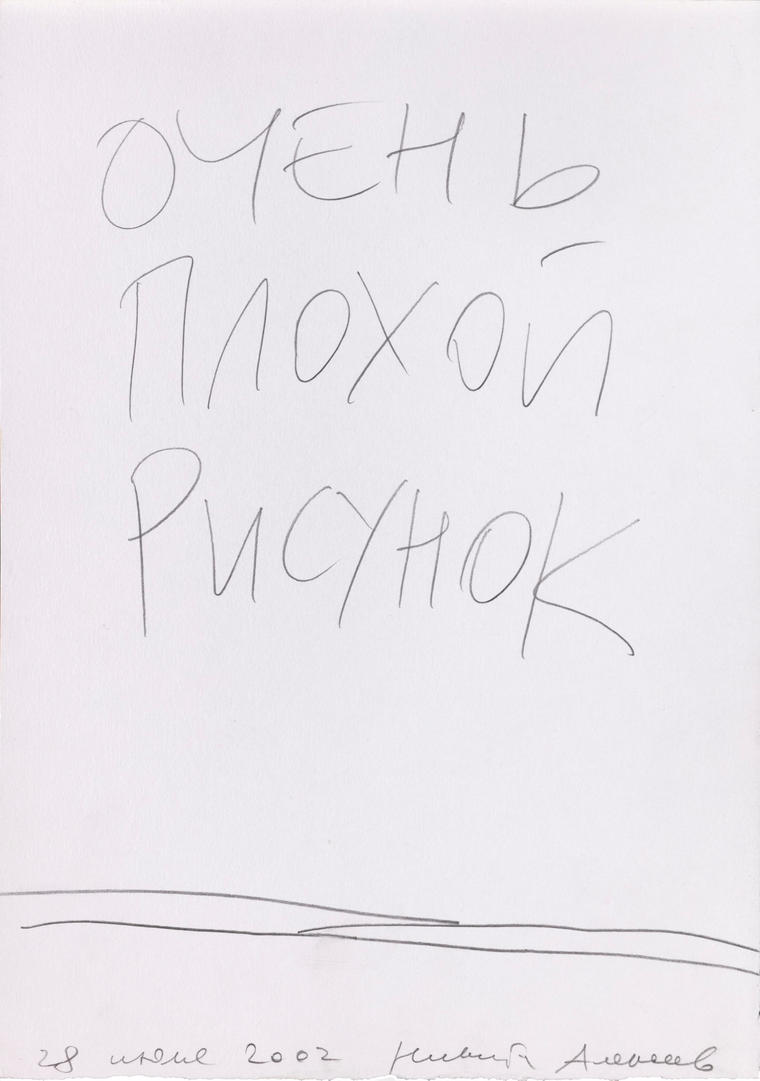 ОЧЕНЬ
ПЛОХОЙ
РИСУНОК
28 июня 2002 Никита Алексеев